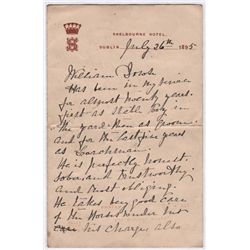 SHELBOURNE HOTEL,
DUBLIN. July 26th 1895
William
Has been in my service
for almost twenty years.
first as Stable boy in
the yard then as Groom
and for the last five years
as Coachman.
He is perfectly honest.
sober and trustworthy
and most obliging.
He takes very good care
of the Horses under his
care his charge, also